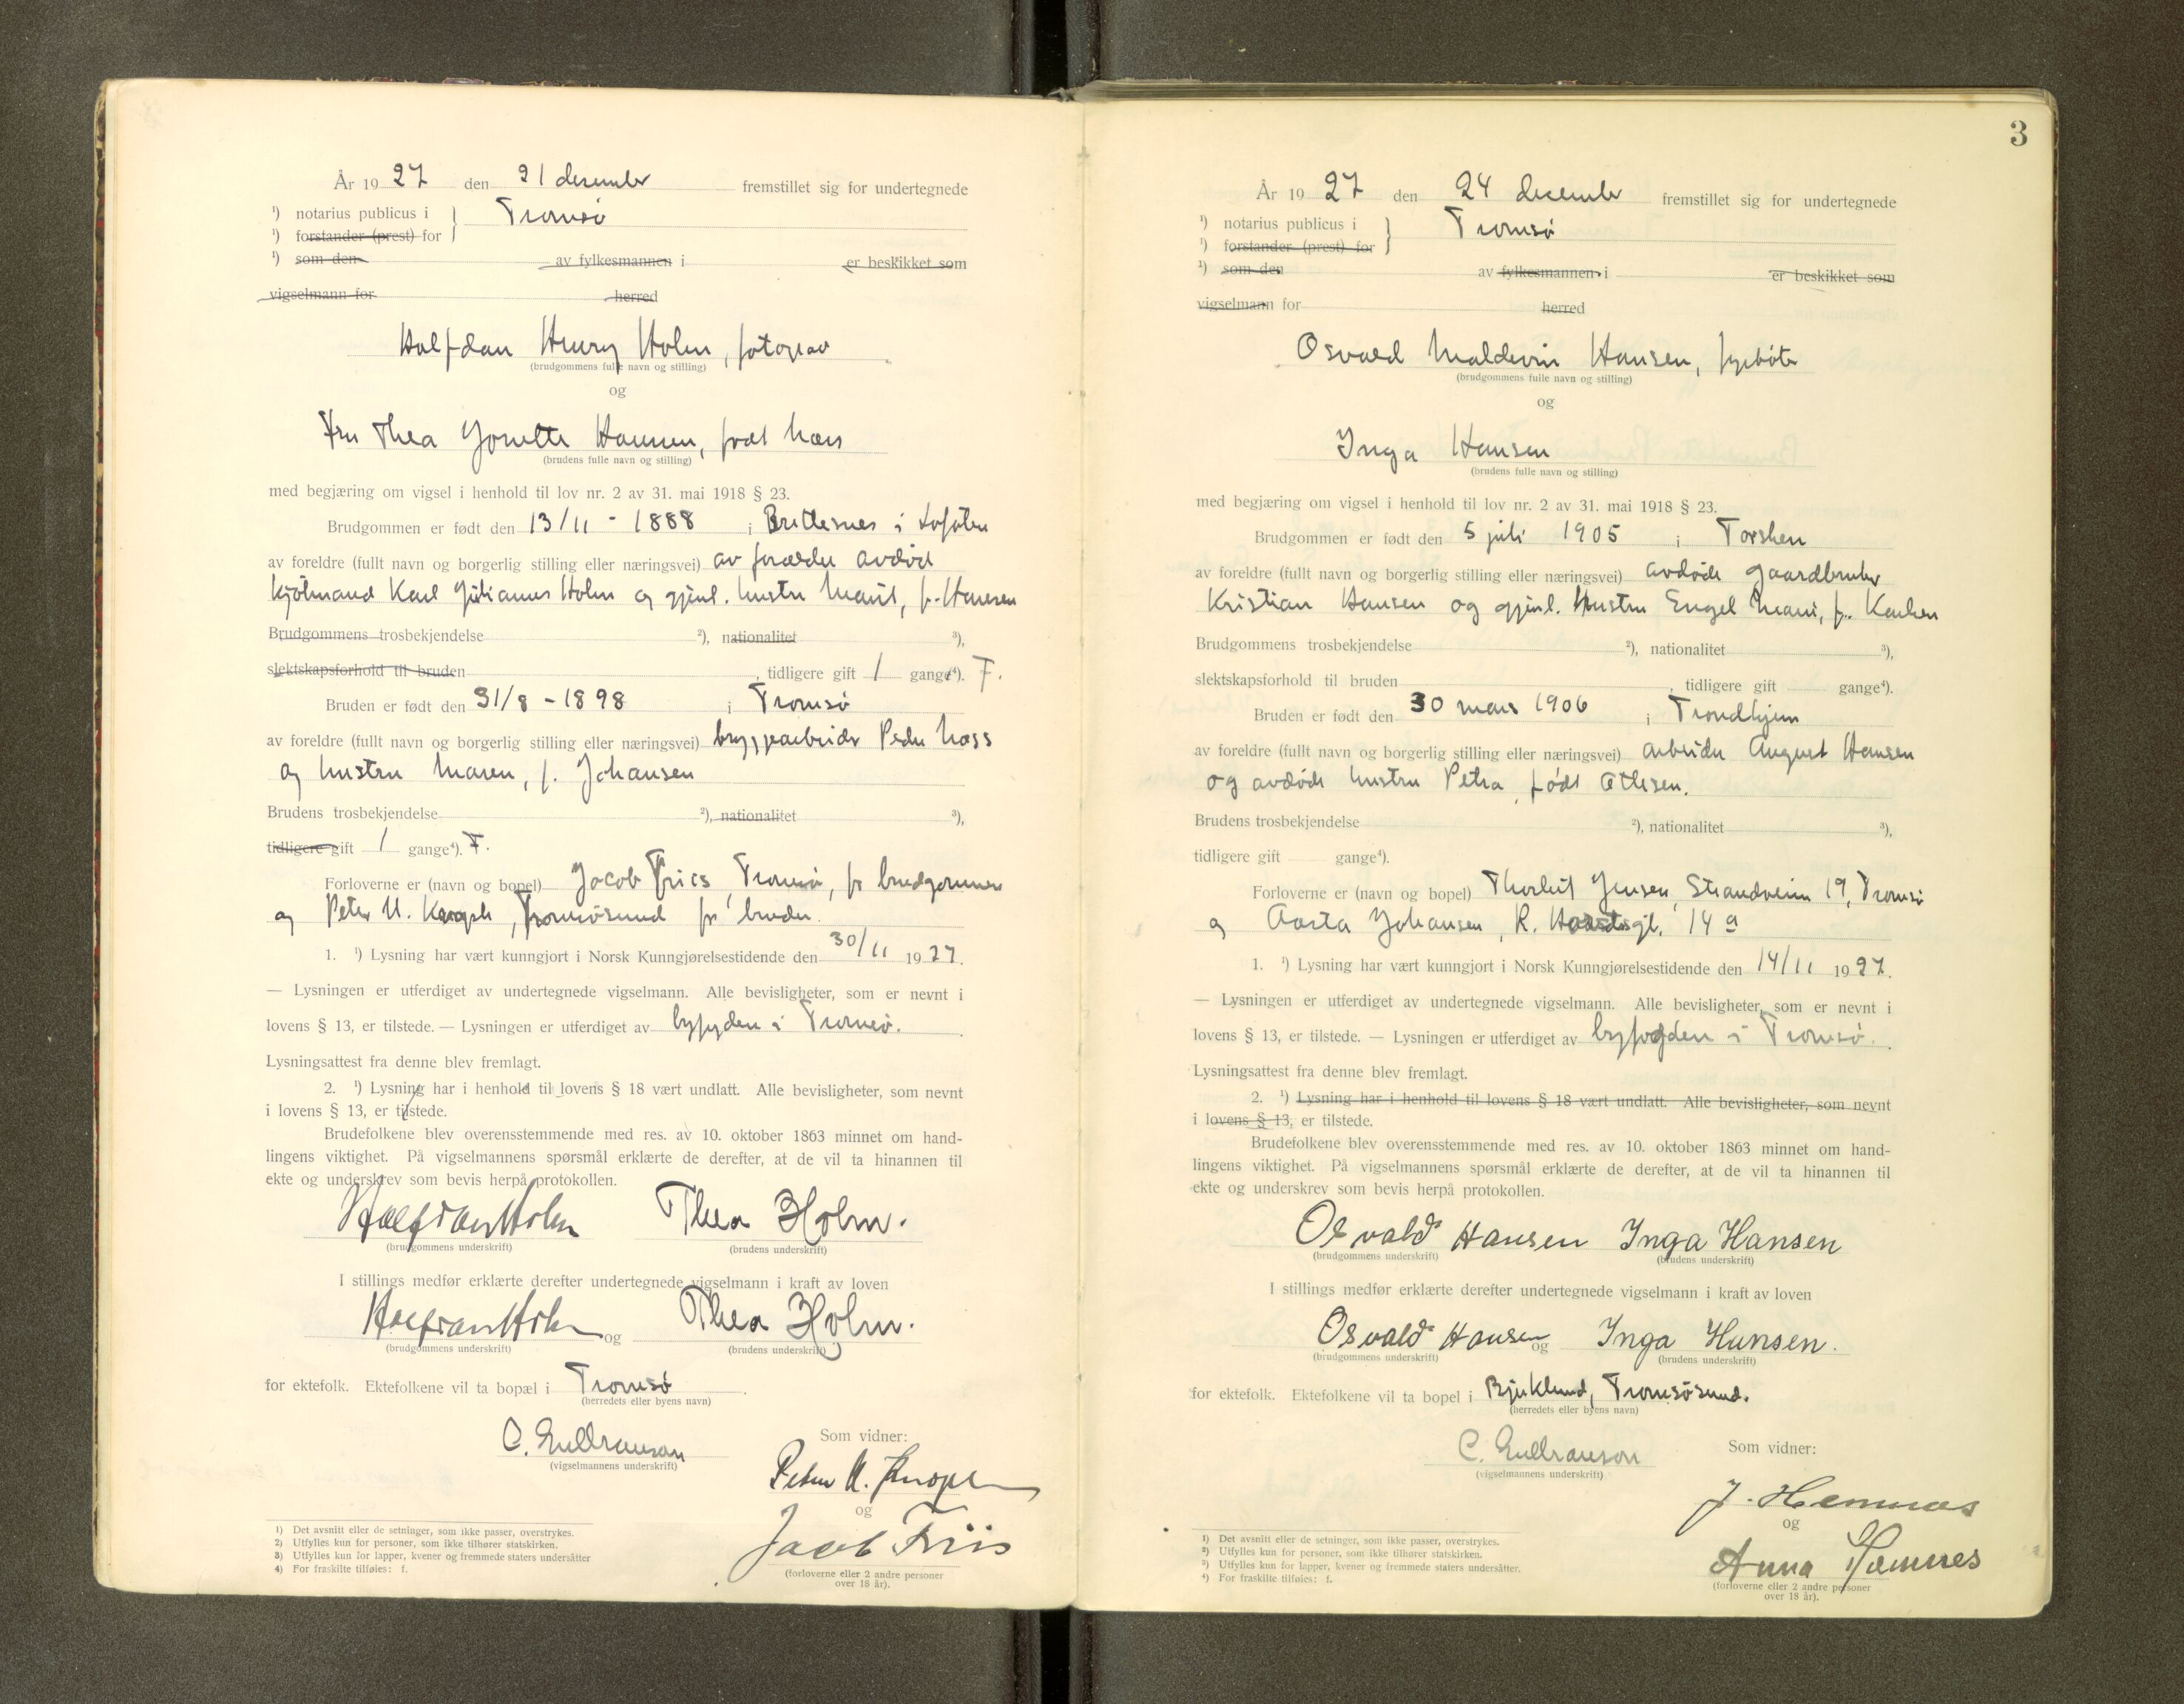 År 1927 den 21 desember fremstillet sig for undertegnede
¹) notarius publicus i } Tromsö
¹) forstander (prest) for
¹) som den av fylkesmannen i er beskikket som
vigselmann for herred
Halfdan Henry Holm, fotograf
(brudgommens fulle navn og stilling)
og
Fru Thea Jonette Hansen, född
(brudens fulle navn og stilling)
med begjæring om vigsel i henhold til lov nr. 2 av 31. mai 1918 § 23.
Brudgommen er født den 13/11 - 1888 i Brettesnes i Lofoten
av foreldre (fullt navn og borgerlig stilling eller næringsvei) av forældre avdød
Karl Julianus Holm og gjenl. hustru Marit, f. Hansen
Brudgommens trosbekjendelse ²), nationalitet ³),
slektskapsforhold til bruden , tidligere gift 1 gange⁴). F.
Bruden er født den 31/8 - 1898 i Tromsö
av foreldre (fullt navn og borgerlig stilling eller næringsvei) bryggearbeider Peder
og hustru Maren, f. Johansen
Brudens trosbekjendelse ²), nationalitet ³),
tidligere gift 1 gange⁴). F.
Forloverne er (navn og bopel) Jacob Friis, Tromsö, for brudgommen
og Peter U. Tromsösund for bruden.
1. ¹) Lysning har vært kunngjort i Norsk Kunngjørelsestidende den 30/11 1927.
— Lysningen er utferdiget av undertegnede vigselmann. Alle bevisligheter, som er nevnt i
lovens § 13, er tilstede. — Lysningen er utferdiget av byfogden i Tromsö.
Lysningsattest fra denne blev fremlagt.
2. ¹) Lysning har i henhold til lovens § 18 vært undlatt. Alle bevisligheter, som nevnt
i lovens § 13, er tilstede.
Brudefolkene blev overensstemmende med res. av 10. oktober 1863 minnet om hand-
lingens viktighet. På vigselmannens spørsmål erklærte de derefter, at de vil ta hinannen til
ekte og underskrev som bevis herpå protokollen.
Halfdan Holm Thea Holm.
(brudgommens underskrift) (brudens underskrift)
I stillings medfør erklærte derefter undertegnede vigselmann i kraft av loven
Halfdan Holm og Thea Holm.
(brudgommens underskrift) (brudens underskrift)
for ektefolk. Ektefolkene vil ta bopæl i Tromsö
(herredets eller byens navn)
C. Gulbranson
(vigselmannens underskrift)
Som vidner:
Peter U.
og
Jacob Friis
(forloverne eller 2 andre personer
over 18 år).
1) Det avsnitt eller de setninger, som ikke passer, overstrykes.
2) Utfylles kun for personer, som ikke tilhører statskirken.
3) Utfylles kun for lapper, kvener og fremmede staters undersåtter
4) For fraskilte tilføies: f.
3
År 1927 den 24 december fremstillet sig for undertegnede
¹) notarius publicus i } Tromsö
¹) forstander (prest) for
¹) som den av fylkesmannen i er beskikket som
vigselmann for herred
Osvald Maldevin Hansen, fyrbøter
(brudgommens fulle navn og stilling)
og
Inga Hansen
(brudens fulle navn og stilling)
med begjæring om vigsel i henhold til lov nr. 2 av 31. mai 1918 § 23.
Brudgommen er født den 5 juli 1905 i Torsken
av foreldre (fullt navn og borgerlig stilling eller næringsvei) avdöde gaardbruker
Kristian Hansen og gjenl. Hustru Engel Marie, f. Karlsen
Brudgommens trosbekjendelse ²), nationalitet ³),
slektskapsforhold til bruden , tidligere gift gange⁴).
Bruden er født den 30 mars 1906 i Trondhjem
av foreldre (fullt navn og borgerlig stilling eller næringsvei) arbeider August Hansen
og avdöde hustru Petra, födt Ottesen.
Brudens trosbekjendelse ²), nationalitet ³),
tidligere gift gange⁴).
Forloverne er (navn og bopel) Thorleif Jensen, Strandveien 19, Tromsö
og Aasta Johansen, R. 14 a
1. ¹) Lysning har vært kunngjort i Norsk Kunngjørelsestidende den 14/11 1927.
— Lysningen er utferdiget av undertegnede vigselmann. Alle bevisligheter, som er nevnt i
lovens § 13, er tilstede. — Lysningen er utferdiget av byfogden i Tromsö.
Lysningsattest fra denne blev fremlagt.
2. ¹) Lysning har i henhold til lovens § 18 vært undlatt. Alle bevisligheter, som nevnt
i lovens § 13, er tilstede.
Brudefolkene blev overensstemmende med res. av 10. oktober 1863 minnet om hand-
lingens viktighet. På vigselmannens spørsmål erklærte de derefter, at de vil ta hinannen til
ekte og underskrev som bevis herpå protokollen.
Osvald Hansen Inga Hansen
(brudgommens underskrift) (brudens underskrift)
I stillings medfør erklærte derefter undertegnede vigselmann i kraft av loven
Osvald Hansen og Inga Hansen.
(brudgommens underskrift) (brudens underskrift)
for ektefolk. Ektefolkene vil ta bopel i Tromsösund.
(herredets eller byens navn)
C. Gulbranson
(vigselmannens underskrift)
Som vidner:
J. Hemnes
og
Anna Hemnes
(forloverne eller 2 andre personer
over 18 år).
1) Det avsnitt eller de setninger, som ikke passer, overstrykes.
2) Utfylles kun for personer, som ikke tilhører statskirken.
3) Utfylles kun for lapper, kvener og fremmede staters undersåtter.
4) For fraskilte tilføies: f.